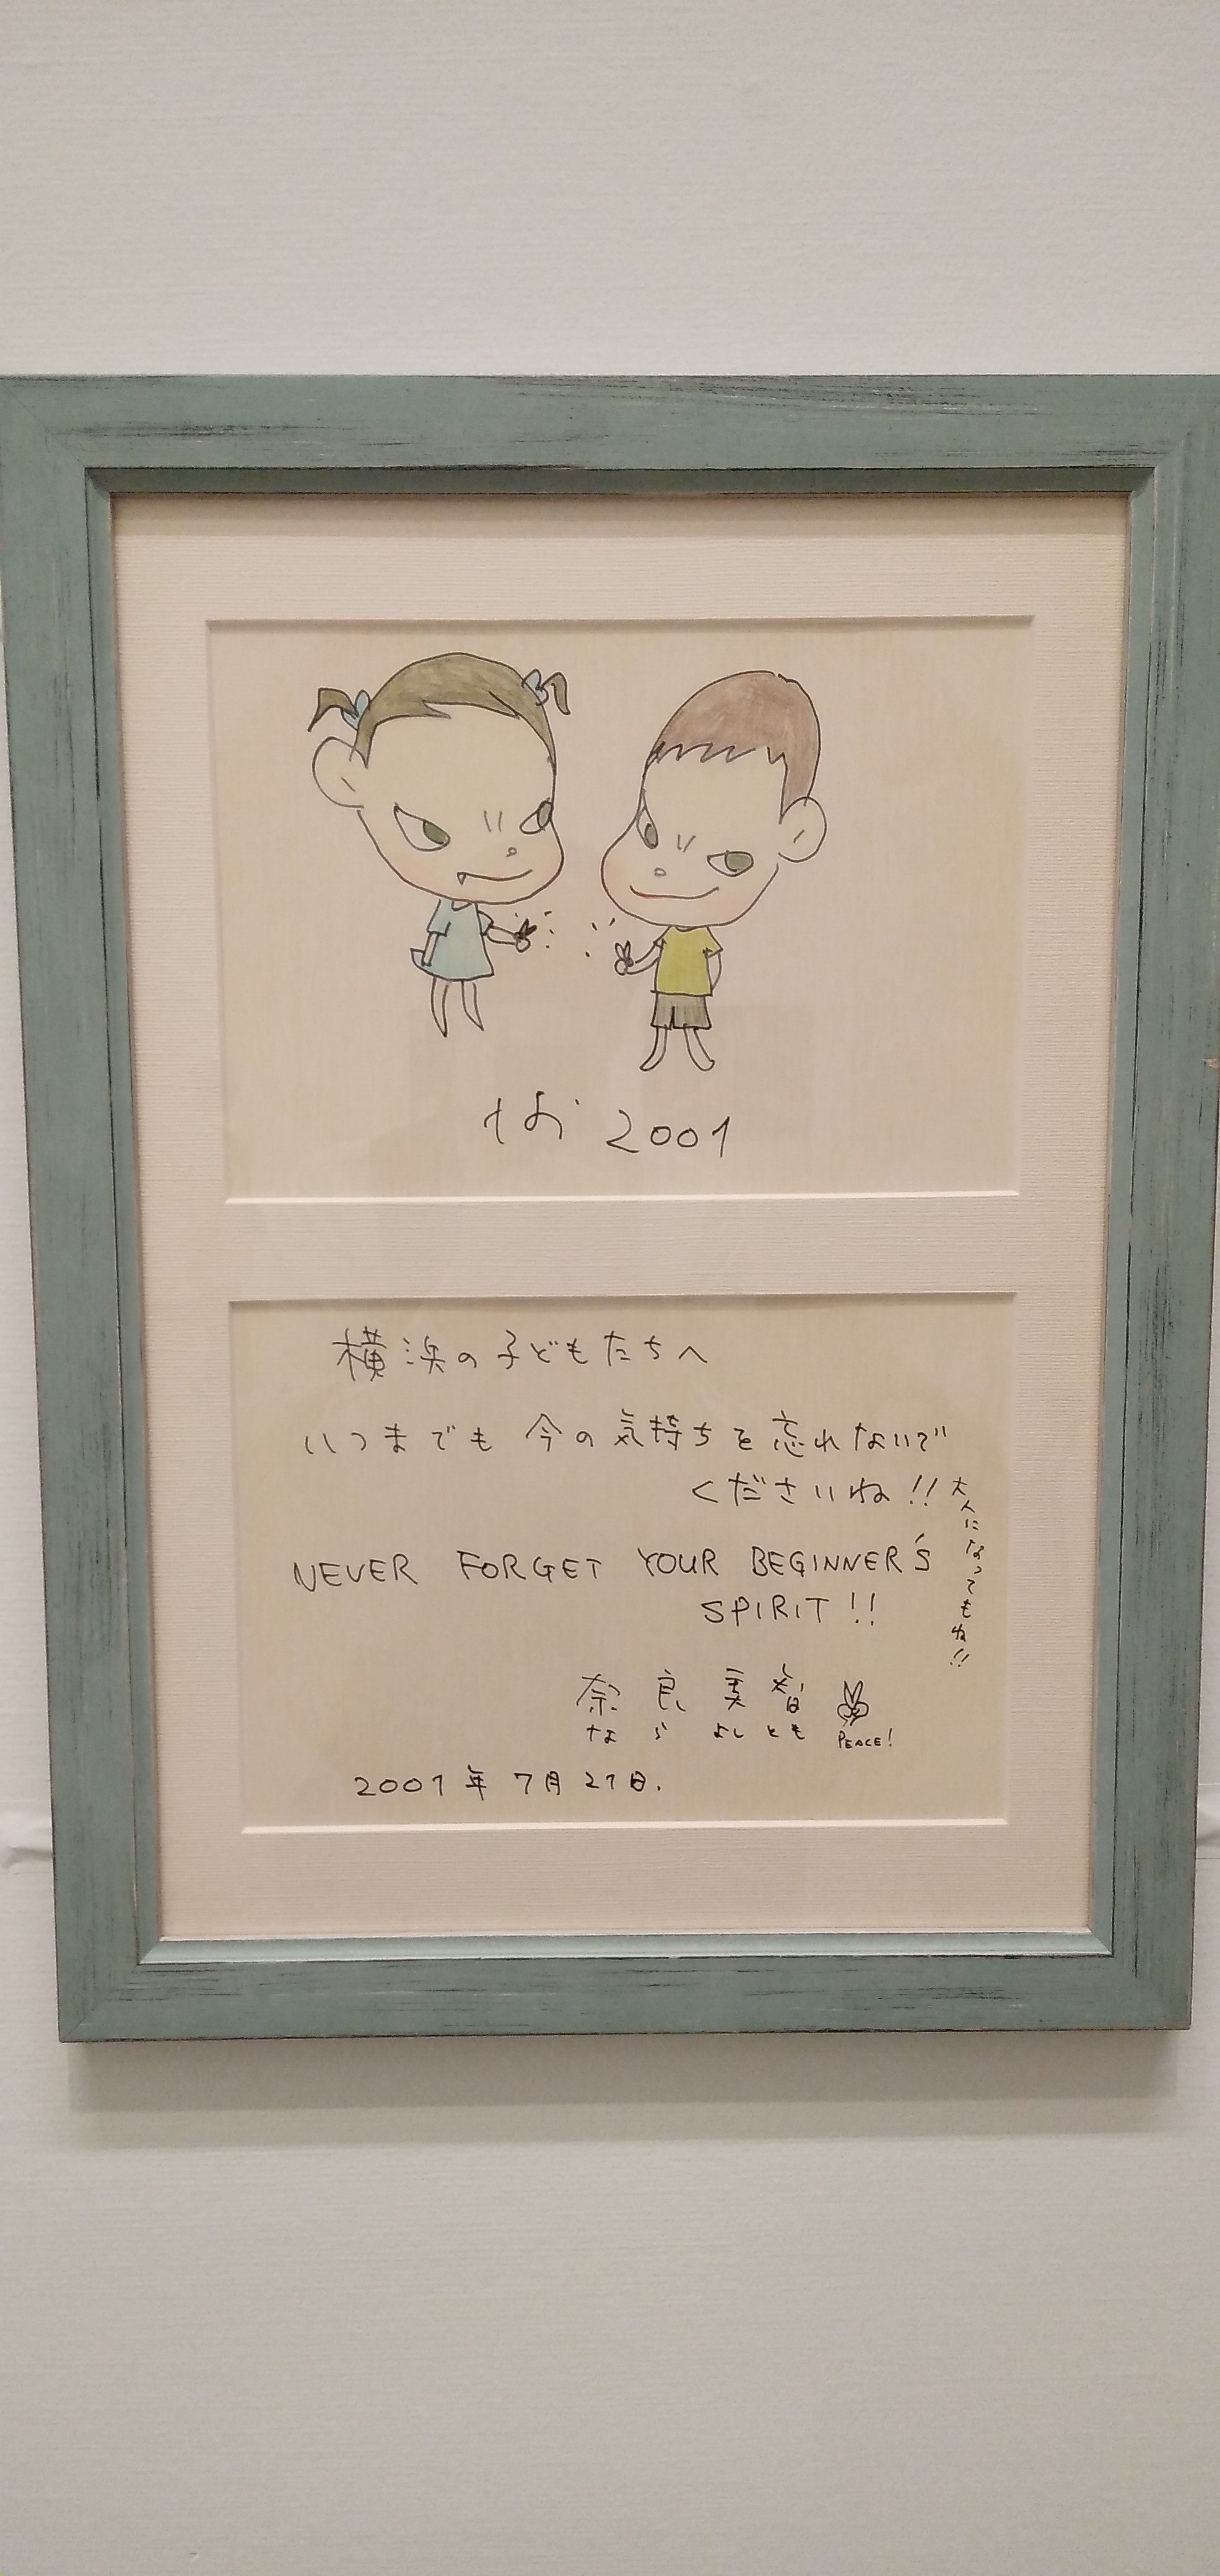 2001
横浜の子どもたちへ
いつまでも今の気持ちを忘れないで
くださいね!!
大人になってもね!!
NEVER FORGET YOUR BEGINNER'S
SPIRIT!!
奈良美智
なら よしとも
PEACE!
2001年7月21日.